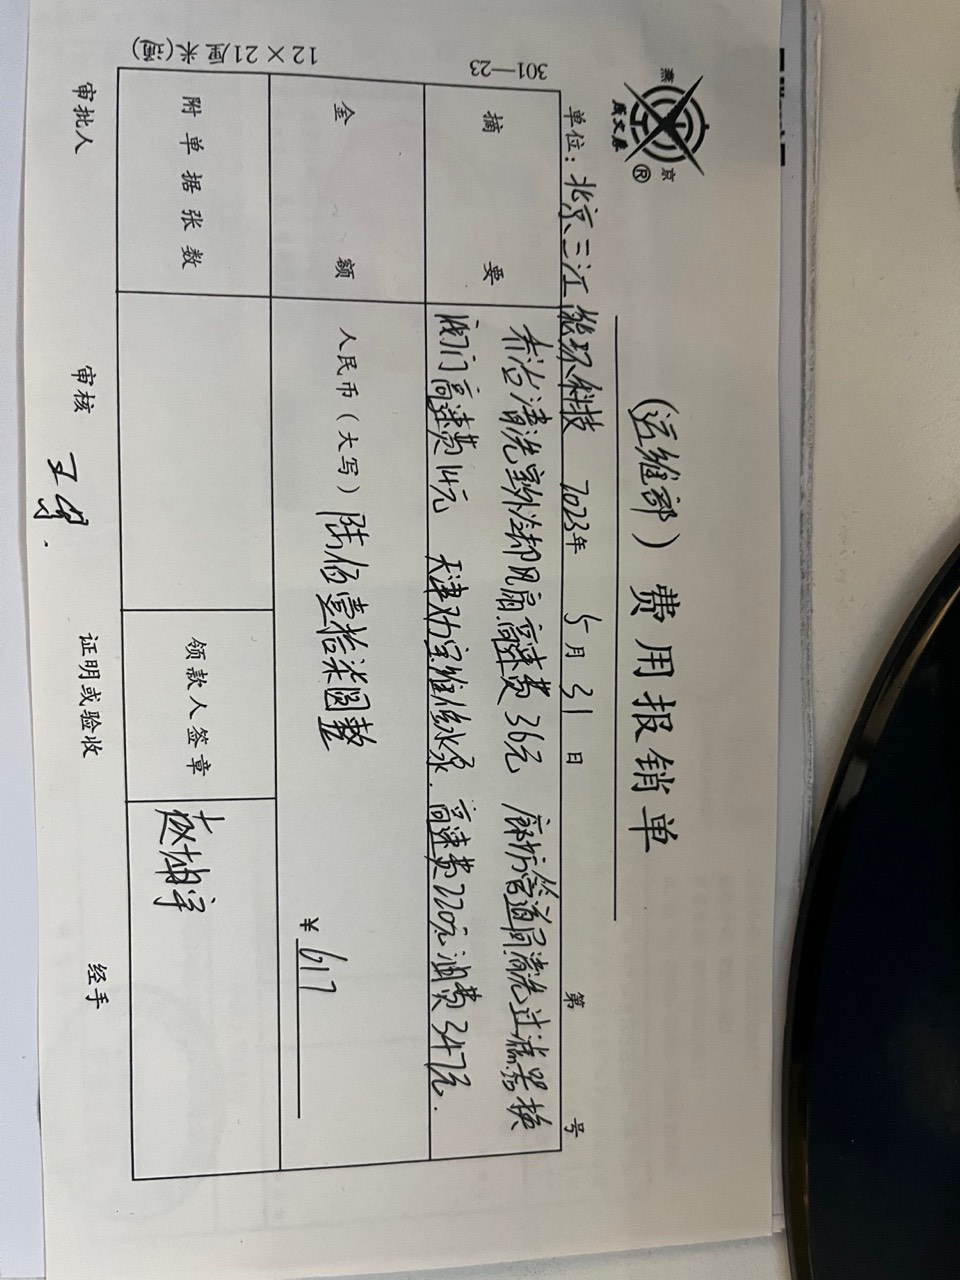 燕
京
®
(运维部)费用报销单
单位:北京三江能环科技 2023年 5月31日 第 号
301—23
摘要
清洗室外冷却风扇高速费36元 廊坊管道间清洗过滤器换
阀门高速费14元 天津劝宝维修水泵.高速费220元油费347元.
金额
人民币(大写)陆佰壹拾柒圆整
¥617
附单据张数
领款人签章
赵坤宇
12×21厘米(通)
审批人 审核 证明或验收 经手